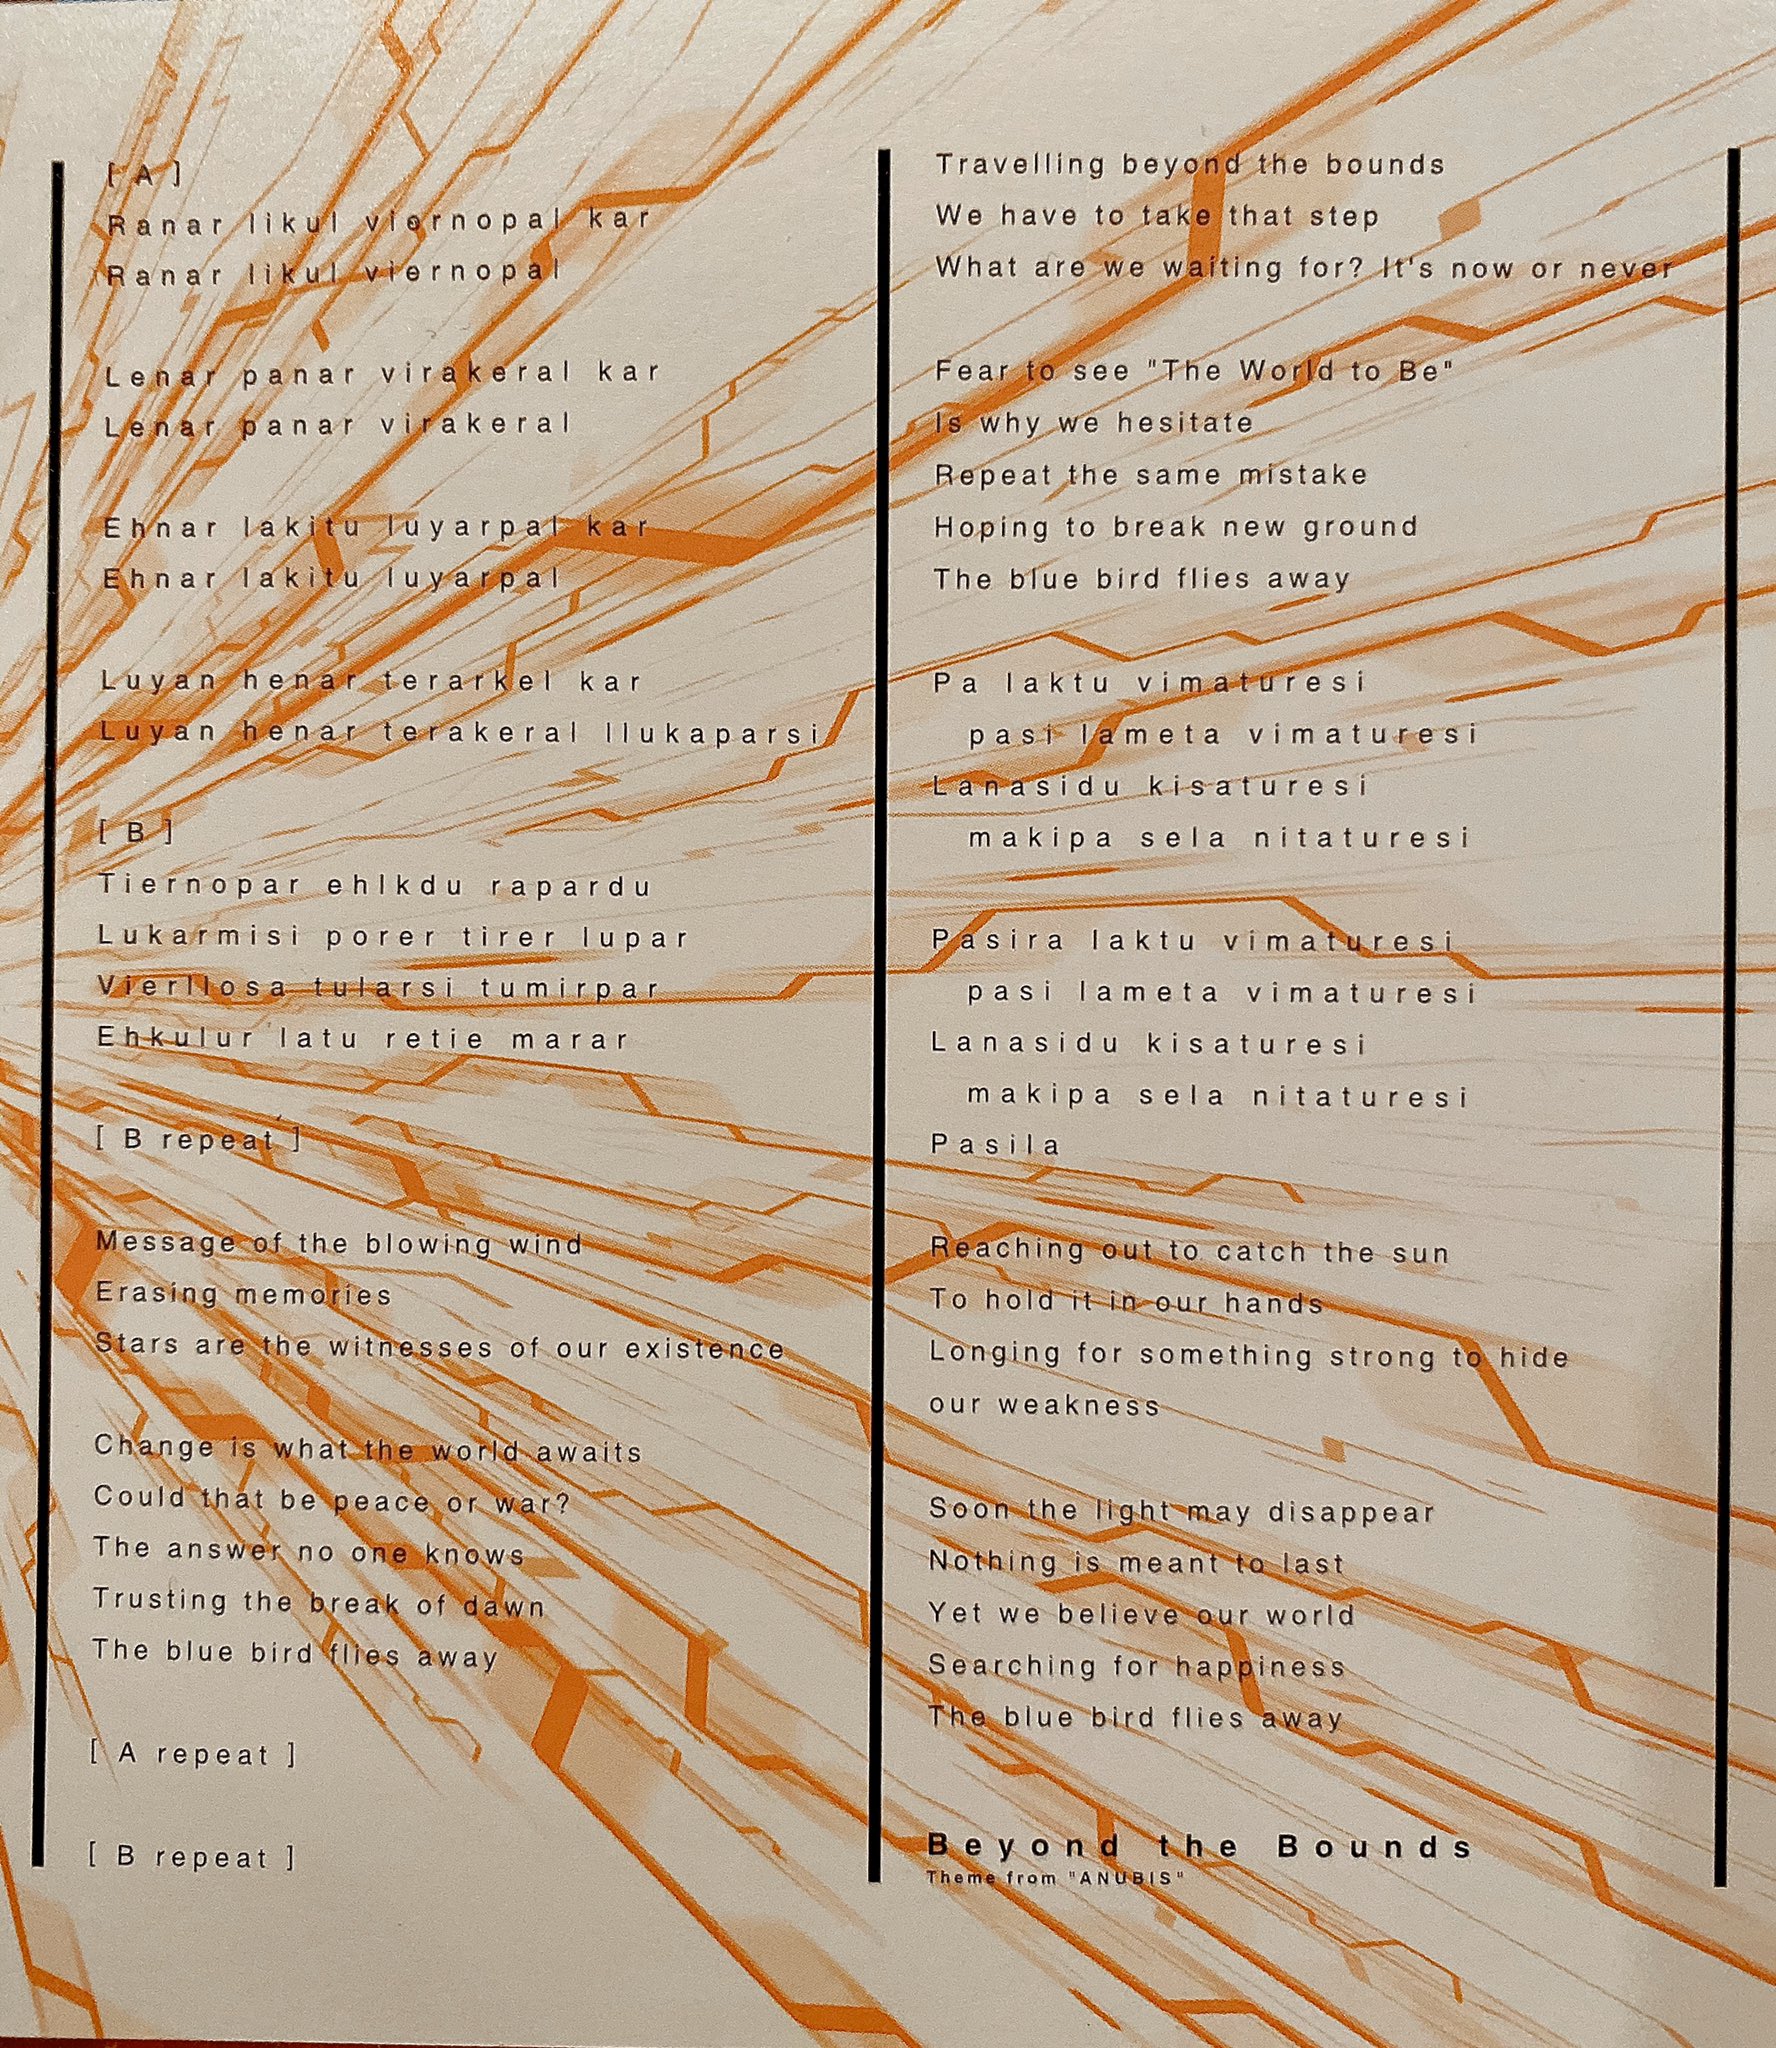 [ A ]
Ranar likul viernopal kar
Ranar likul viernopal
Lenar panar virakeral kar
Lenar panar virakeral
Ehnar lakitu luyarpal kar
Ehnar lakitu luyarpal
Luyan henar terarkel kar
Luyan henar terakeral llukaparsi
[ B ]
Tiernopar ehlkdu rapardu
Lukarmisi porer tirer lupar
Vierllosa tularsi tumirpar
Ehkulur latu retie marar
[ B repeat ]
Message of the blowing wind
Erasing memories
Stars are the witnesses of our existence
Change is what the world awaits
Could that be peace or war?
The answer no one knows
Trusting the break of dawn
The blue bird flies away
[ A repeat ]
[ B repeat ]
Travelling beyond the bounds
We have to take that step
What are we waiting for? It's now or never
Fear to see "The World to Be"
Is why we hesitate
Repeat the same mistake
Hoping to break new ground
The blue bird flies away
Pa laktu vimaturesi
pasi lameta vimaturesi
Lanasidu kisaturesi
makipa sela nitaturesi
Pasira laktu vimaturesi
pasi lameta vimaturesi
Lanasidu kisaturesi
makipa sela nitaturesi
Pasila
Reaching out to catch the sun
To hold it in our hands
Longing for something strong to hide
our weakness
Soon the light may disappear
Nothing is meant to last
Yet we believe our world
Searching for happiness
The blue bird flies away
Beyond the Bounds
Theme from "ANUBIS"